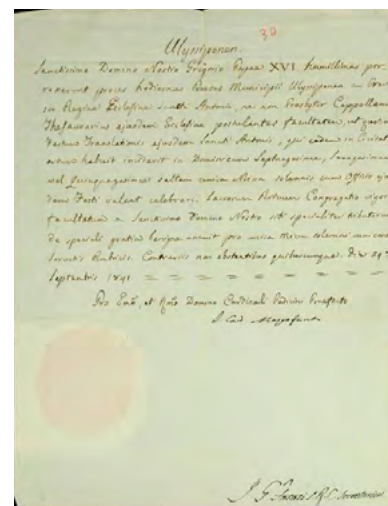 30
Ulyssiponen.
Sanctissimo Domino Nostro Gregorio Papae XVI humillimae por-
rexerunt preces hodiernus Municipii Ulyssiponen
Regiae Ecclesiae Sancti Antonii, nec non Presbyter Cappellanus
Thesaurarius ejusdem Ecclesiae postulantes facultatem, ut quoties
Festum Translationis ejusdem Sancti Antonii, quae eadem in Civitate
inciderit in Dominicam Septuagesimae, Sexagesimae
vel Quinquagesimae saltem unica Missa solemnis cum Officio ejus-
dem Festi valeat celebrari. Sacrorum Rituum Congregatio vigore
facultatum a Sanctissimo Domino Nostro sibi specialiter tributarum
de speciali gratia benigne annuit pro unica Missa solemni
servatis Rubricis. Contrariis non obstantibus quibuscumque. Die 24
Septembris 1841
Pro Emo, et Rmo Domino Cardinali Praefecto
J. G. S. R. C. Secretarius